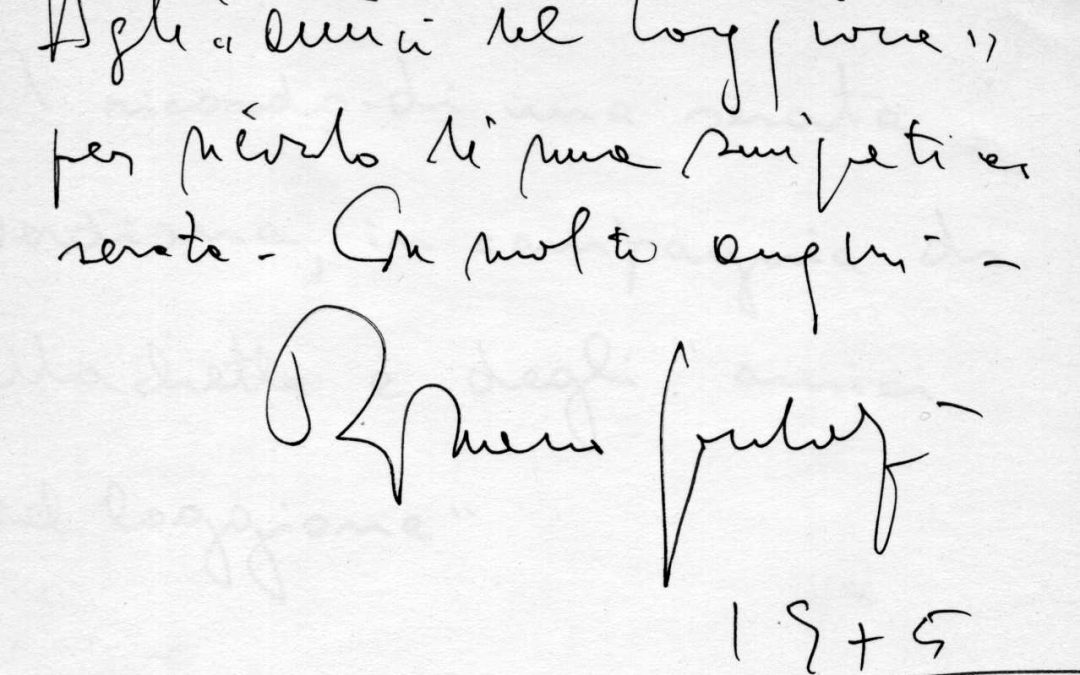 Agli "amici del Loggione"
per ricordo di una simpatica
serata - Con molti auguri -
Romano Gandolfi
1975